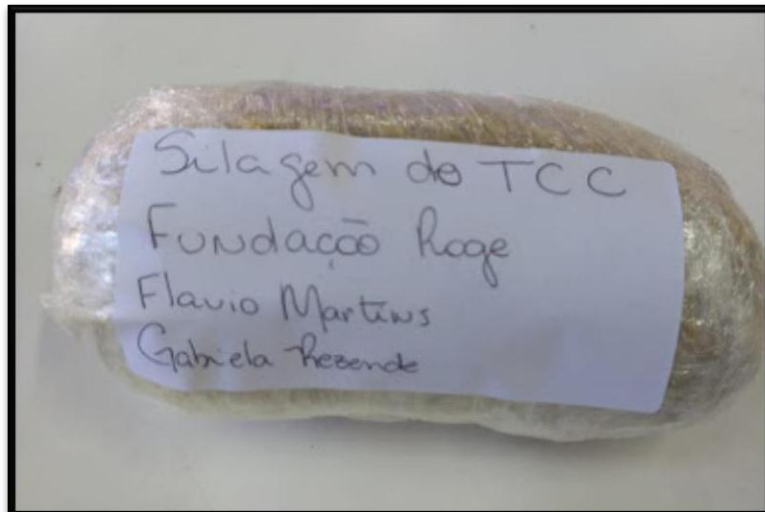 Silagem do TCC
Fundação Roge
Flavio Martins
Gabriela Rezende